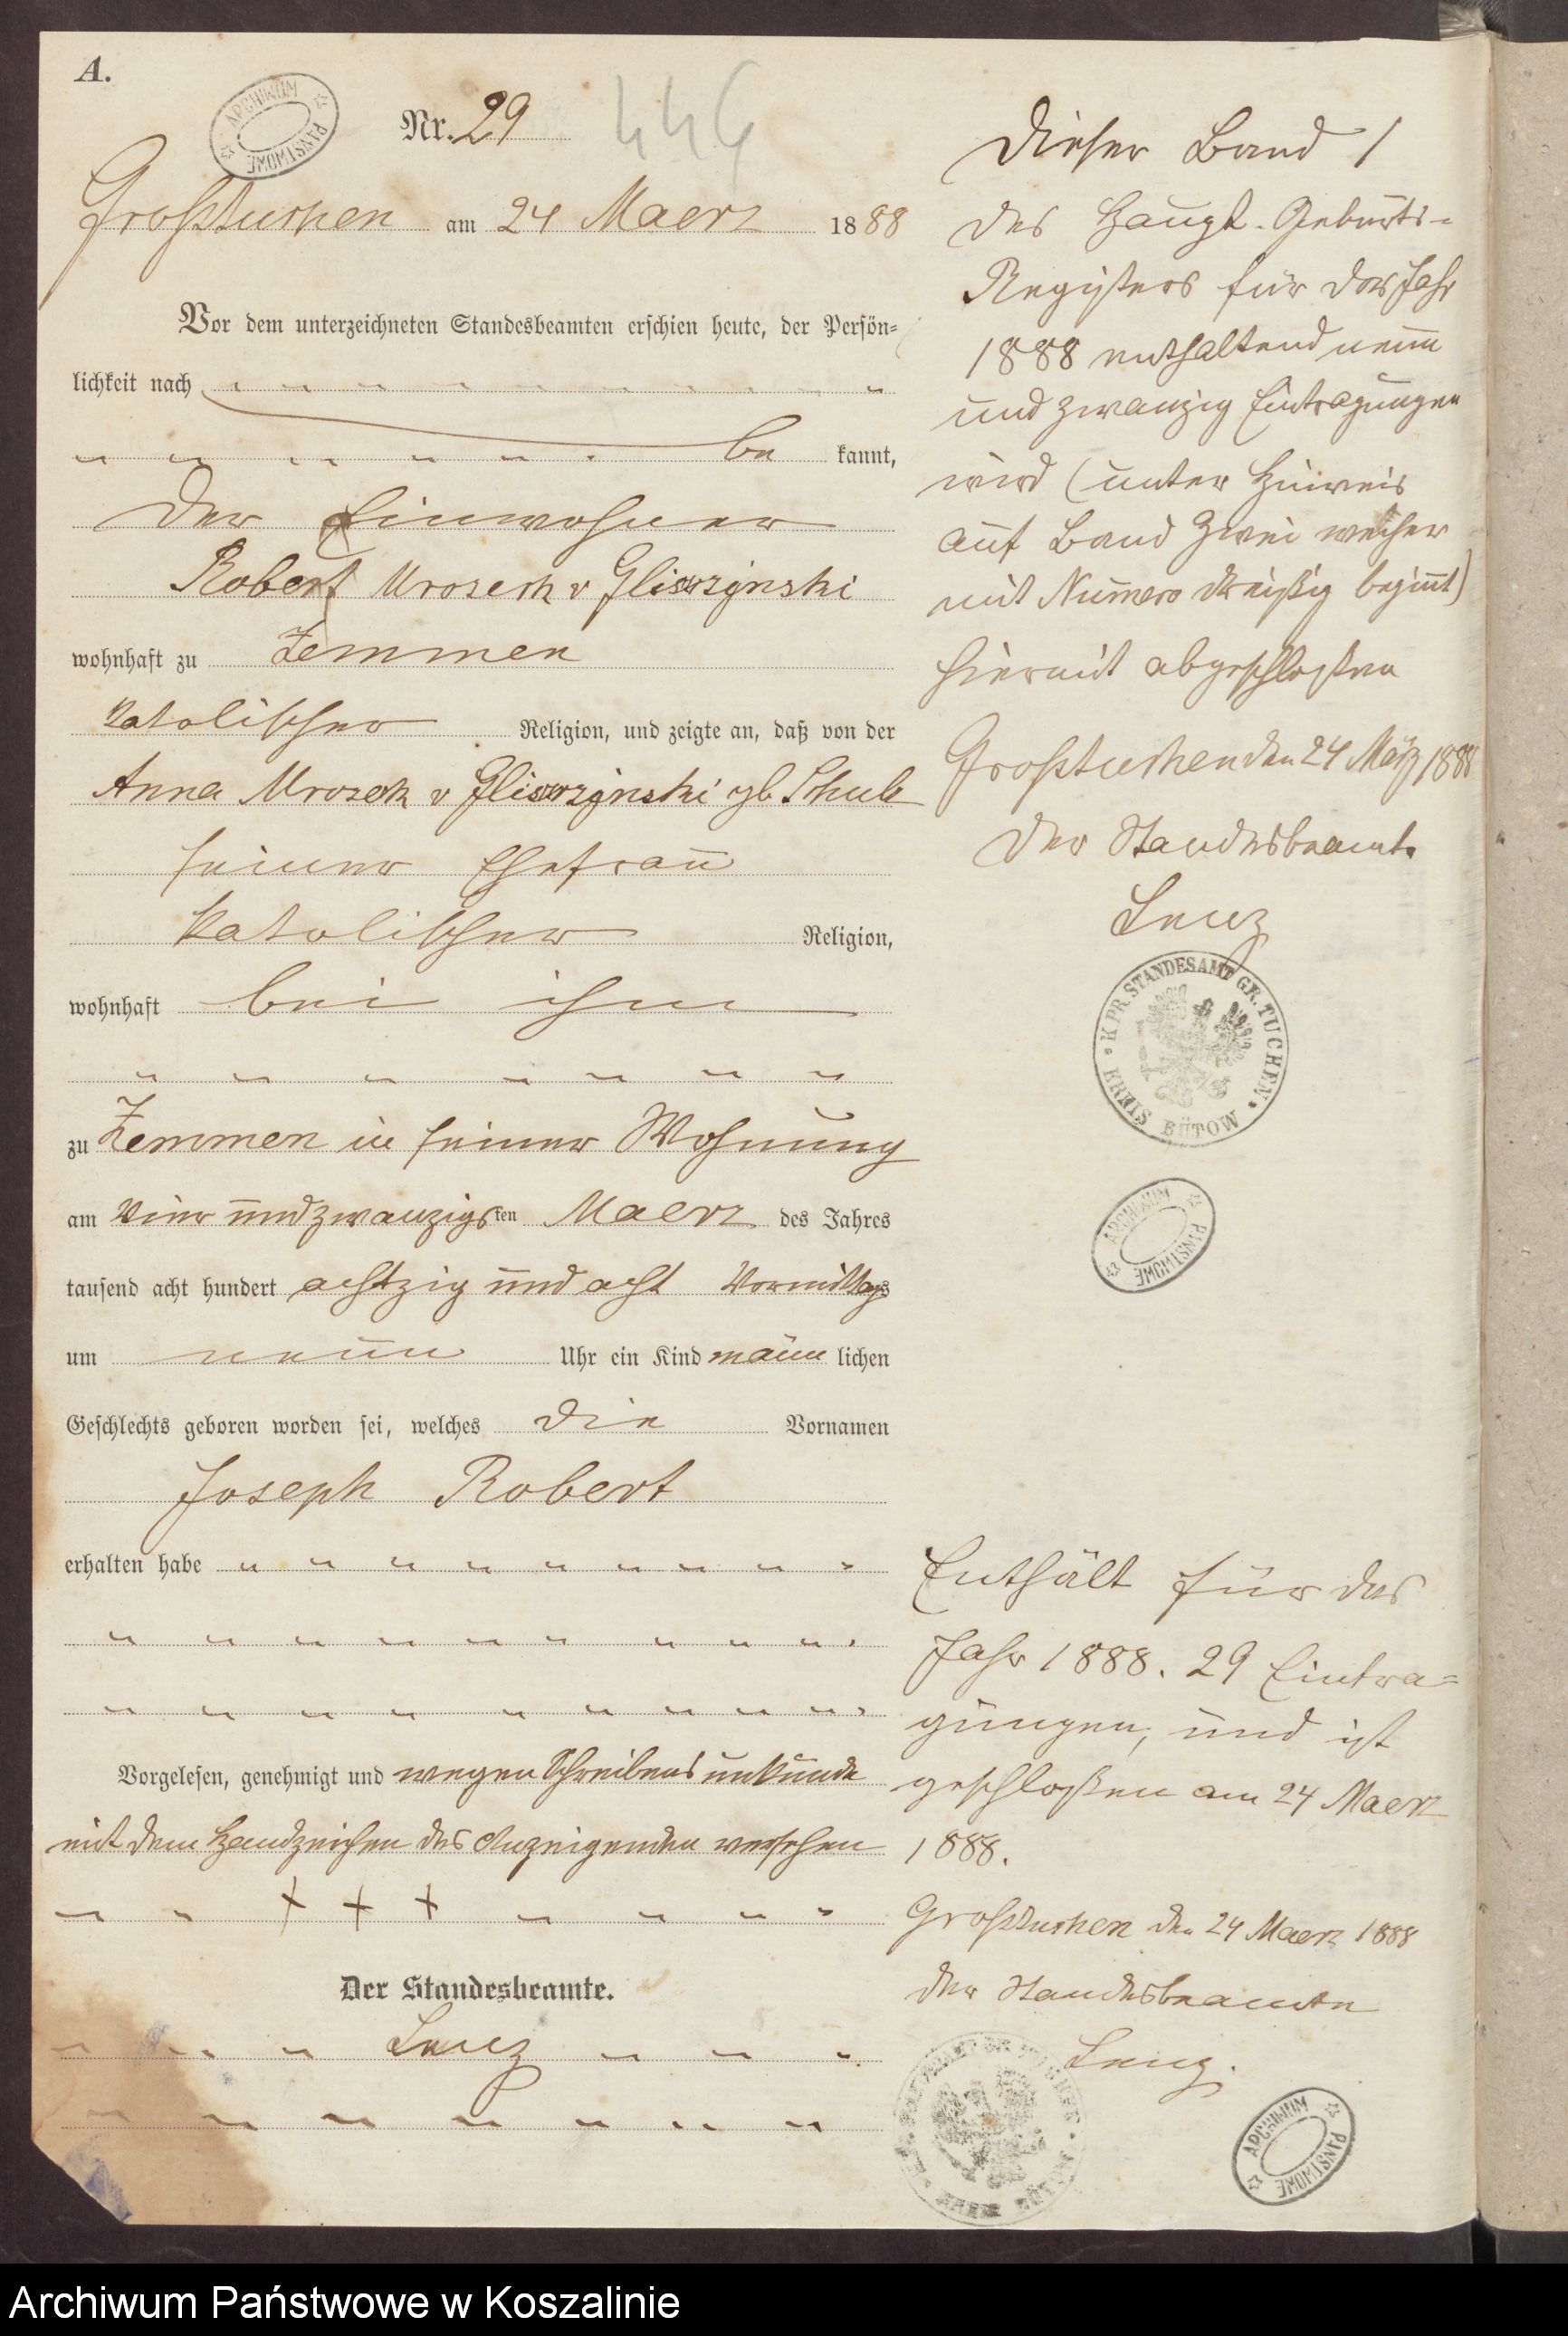 A.
ARCHIWUM PAŃSTWOWE
Nr. 29
446
Großtuchen am 24 Maerz 1888
Vor dem unterzeichneten Standesbeamten erschien heute, der Persön=
lichkeit nach
be kannt,
der Einwohner
Robert Mroseck v Glisszynski
wohnhaft zu Zemmen
katolischer Religion, und zeigte an, daß von der
Anna Mrosek v Glisszynski gb
seiner Ehefrau
katolischer Religion,
wohnhaft bei ihm
zu Zemmen in seiner Wohnung
am vier und zwanzigsten Maerz des Jahres
tausend acht hundert achtzig und acht Vormittags
um neun Uhr ein Kind männlichen
Geschlechts geboren worden sei, welches die Vornamen
Joseph Robert
erhalten habe
Vorgelesen, genehmigt und wegen Schreibens unkunde
mit dem Handzeichen des Anzeigenden versehen
+ + +
Der Standesbeamte.
Lenz
Dieser Band 1
des Haupt-Geburts=
Registers für das Jahr
1888 enthaltend neun
und zwanzig Eintragungen
wird (unter Hinweis
auf Band zwei welcher
mit Numero dreißig beginnt)
hiermit abgeschlossen
Großtuchen den 24 März 1888
Der Standesbeamte
Lenz
K. PR. STANDESAMT GR. TUCHEN. KREIS BÜTOW
ARCHIWUM PAŃSTWOWE
Enthält für das
Jahr 1888. 29 Eintra=
gungen, und ist
geschloßen am 24 Maerz
1888.
Großtuchen den 24 Maerz 1888
der Standesbeamte
Lenz.
ARCHIWUM PAŃSTWOWE
Archiwum Państwowe w Koszalinie